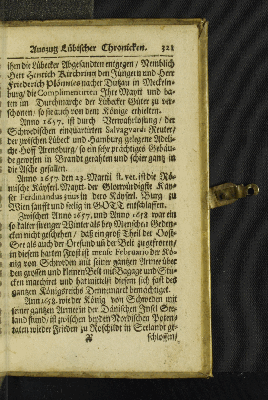 Auszug Lübischer Chronicken. 321
sen die Lübecker Abgesandten entgegen / Nemblich
Herr Henrich Kirchring den Jüngern und Herr
Friederich Plönnies nacher Dutzau in Mecklen-
burg / die Complimentirten Ihre Mayst und ba-
ten im Durchmarche der Lübecker Güter zu ver-
schonen / so sie auch von dem Könige erhielten.
Anno 1657. ist durch Verwahrlosung / der
Schwedischen einquartirten Salvaguarde Reuter,
der zwischen Lübeck und Hamburg gelegene Adeli-
che Hoff Arensburg / so ein sehr prächtiges Gebäu-
de gewesen in Brandt gerahten und schier gantz in
die Asche gefallen.
Anno 1657. den 23. Martii st. vet. ist die Rö-
mische Käysel. Mayt. der Glorwürdigste Kay-
ser Ferdinandus 3tius in dero Käysel. Burg zu
Wien sanfft und seelig in GOTT entschlaffen.
Zwischen Anno 1657. und Anno 1658 war ein
so kalter strenger Winter als bey Menschen Geden-
cken nicht geschehen / daß ein groß Theil der Oost-
See als auch der Oresund und der Belt zugefroren /
in diesem harten Frost ist mense Februario der Kö-
nig von Schweden mit seiner gantzen Armee über
den grossen und kleinen Belt mit Bagage und Stü-
cken marchiret und hat mittelst diesem sich fast des
gantzen Königreichs Dennemarck bemächtiget.
Ann 1658. wie der König von Schweden mit
seiner gantzen Armee in der Dänischen Insel See-
land stund / ist zwischen beyden Nordischen Poten-
taten wieder Frieden zu Roschildt in Seelandt ge-
schlossen /